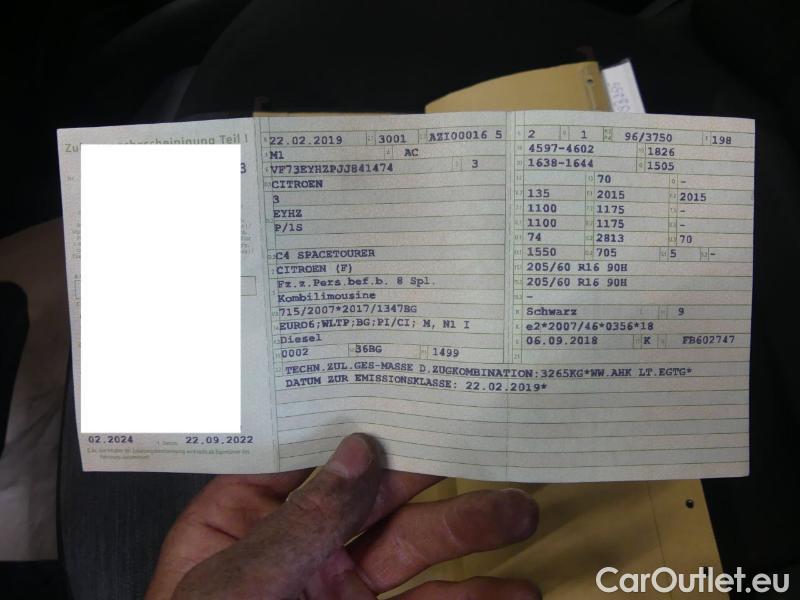 22.02.2019 3001 AZI00016 5
M1 AC
VF73EYHZPJJ841474 3
CITROEN
3
EYHZ
P/1S
C4 SPACETOURER
CITROEN (F)
Fz.z.Pers.bef.b. 8 Spl.
Kombilimousine
715/2007*2017/1347BG
EURO6;WLTP;BG;PI/CI; M, N1 I
Diesel
0002 36BG 1499
2 1 96/3750 198
4597-4602 1826
1638-1644 1505
70 -
135 2015 2015
1100 1175 -
1100 1175 -
74 2813 70
1550 705 5 -
205/60 R16 90H
205/60 R16 90H
-
Schwarz 9
e2*2007/46*0356*18
06.09.2018 K FB602747
TECHN.ZUL.GES-MASSE D.ZUGKOMBINATION:3265KG*WW.AHK LT.EGTG*
DATUM ZUR EMISSIONSKLASSE: 22.02.2019*
Teil I
3
02.2024 22.09.2022
CarOutlet.eu